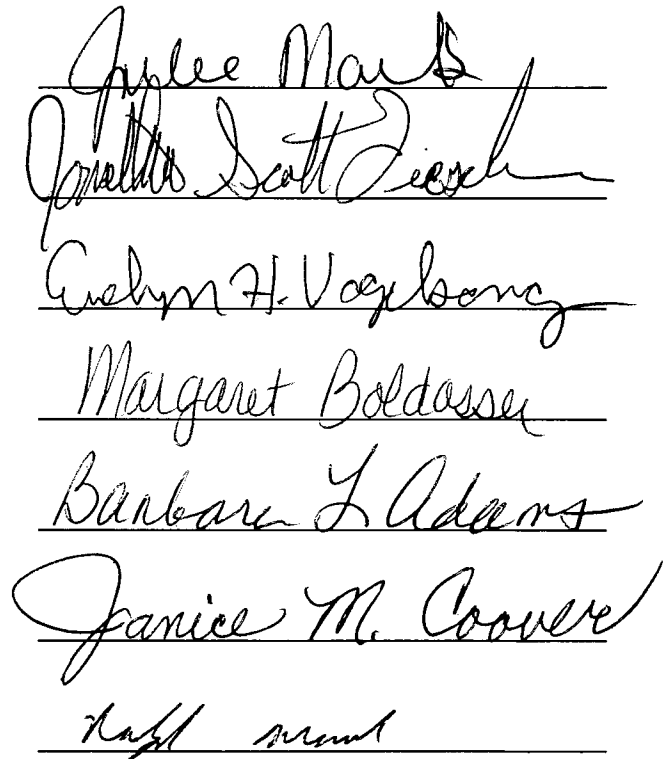 Jaylee Marks
Jonathan Scott
Evelyn H. Vogelsong
Margaret Boldosser
Barbara L Adams
Janice M. Coover